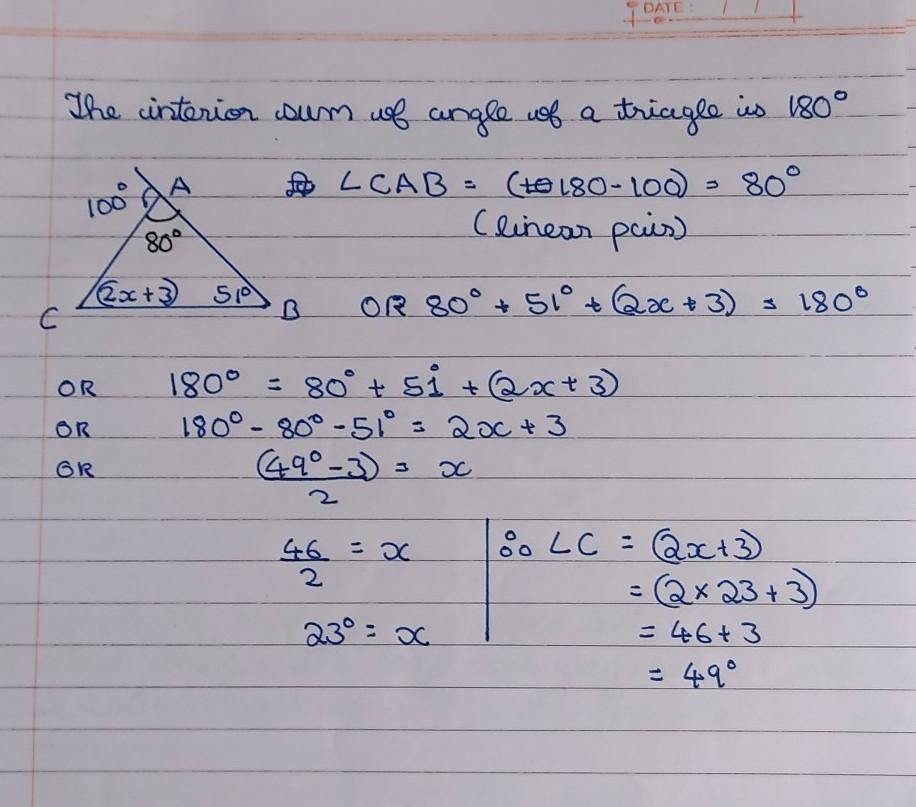 DATE : / /
The interior sum of angle of a triagle is 180°
100° A
∠CAB = (180-100) = 80°
80°
(linear pairs)
(2x+3) 51°
C B OR 80° + 51° + (2x + 3) = 180°
OR 180° = 80° + 51° + (2x + 3)
OR 180° - 80° - 51° = 2x + 3
OR (49° - 3) = x
2
46 = x
2
∴ ∠C = (2x+3)
= (2 × 23 + 3)
23° = x
= 46 + 3
= 49°